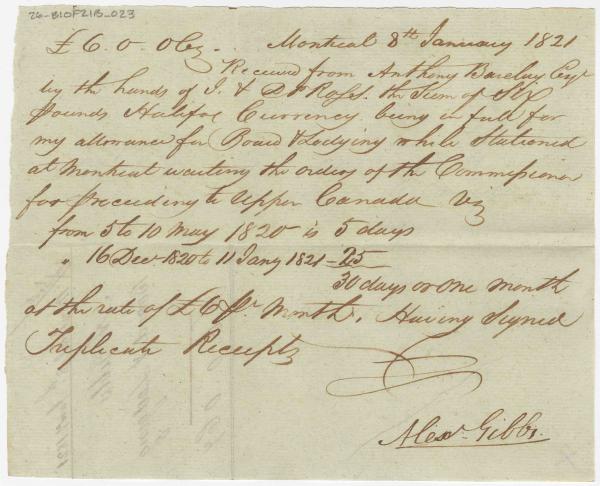 26-B10F21B_023
£6.0.0 Cy. Montreal 8th January 1821
Received from Anthony Barclay Esqr
by the hands of J. & D. Ross. the Sum of Six
pounds Halifax Currency being in full for
my allowance for Board & Lodging while Stationed
at Montreal waiting the orders of the Commissioner
for proceeding to Upper Canada Viz
from 5 to 10 May 1820 is 5 days
" 16 Decr 1820 to 11 Jany 1821 - 25
30 days or One month
at the rate of £6 Pr Month. Having Signed
Triplicate Receipts
Alexr Gibbs.